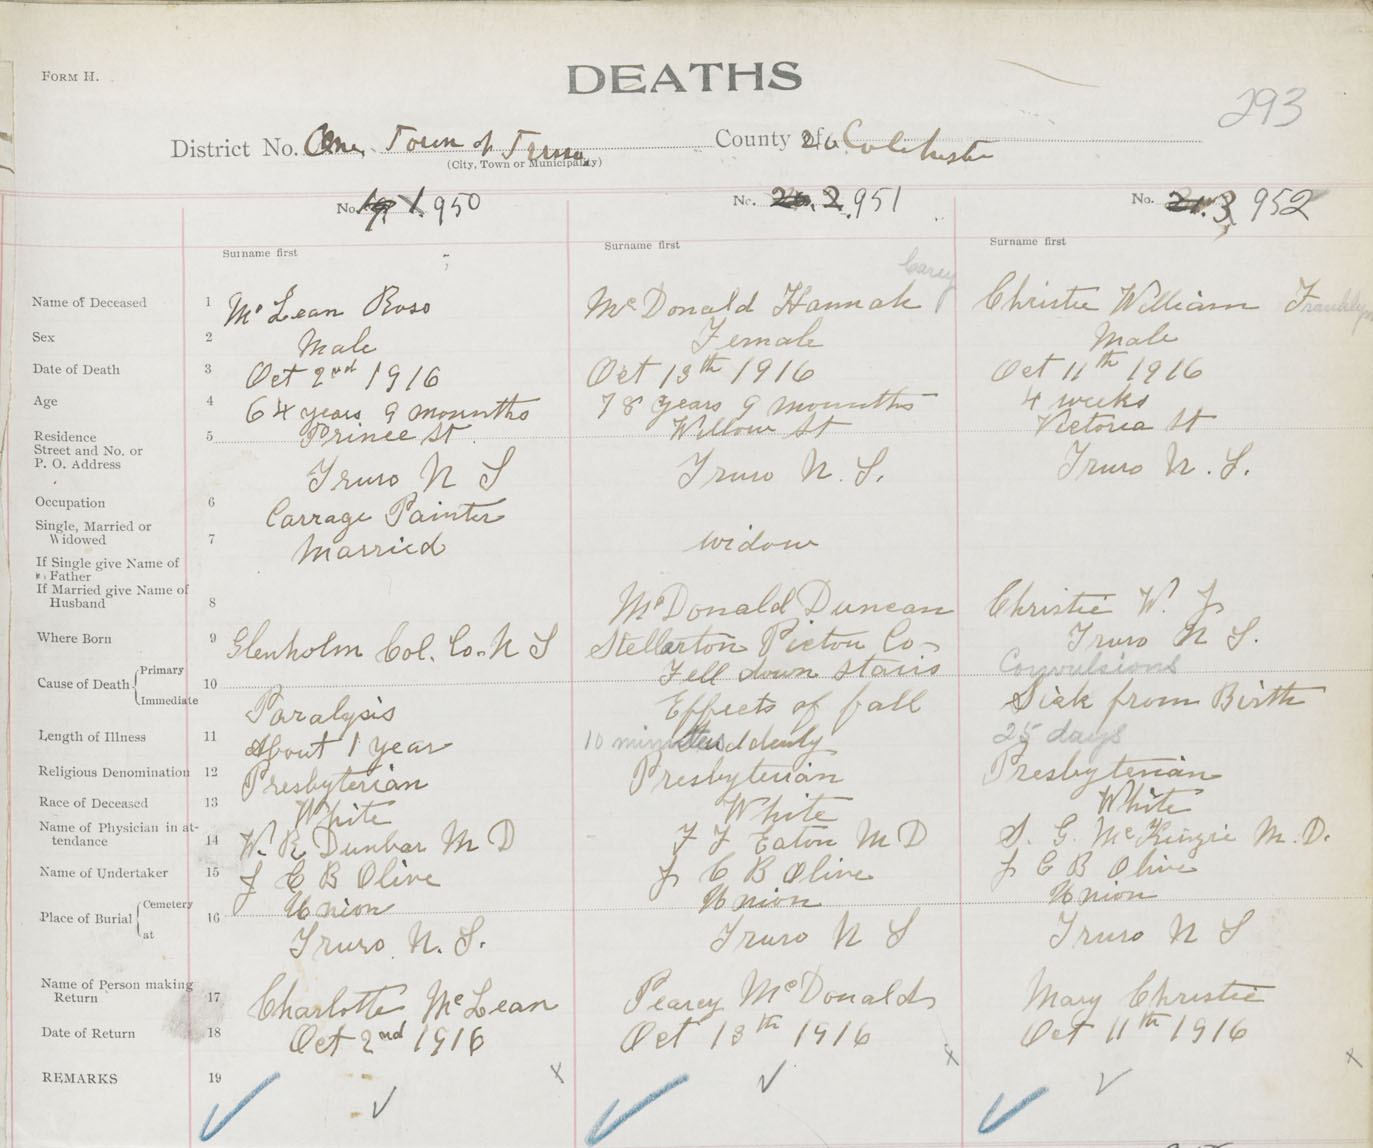 FORM H.
DEATHS
293
District No. One, Town of Truro County of 26 Colchester
(City, Town or Municipality)
No. 19. 1. 950 No. 20. 2. 951 No. 21. 3. 952
Surname first Surname first Surname first
Carey
Name of Deceased 1 Mc Lean Ross Mc Donald Hannah Christie William Franklyn
Sex 2 Male Female Male
Date of Death 3 Oct 2nd 1916 Oct 13th 1916 Oct 11th 1916
Age 4 64 years 9 mounths 78 years 9 mounths 4 weeks
Residence 5 Prince St. Willow St Victoria St
Street and No. or
P. O. Address Truro N S Truro N. S. Truro N. S.
Occupation 6 Carrage Painter
Single, Married or
Widowed 7 Married widow
If Single give Name of
Father
If Married give Name of
Husband 8 Mc Donald Duncan Christie W. J
Where Born 9 Glenholm Col. Co. N S Stellarton Picton Co Truro N S.
Cause of Death Primary 10 Fell down stairs Convulsions
Immediate Paralysis Effects of fall Sick from Birth
Length of Illness 11 About 1 year 10 minutes Suddenly 25 days
Religious Denomination 12 Presbyterian Presbyterian Presbyterian
Race of Deceased 13 White White White
Name of Physician in at-
tendance 14 W. R. Dunbar M D F F Eaton M D S. G. McKinzie M. D.
Name of Undertaker 15 J C B Olive J C B Olive J C B Olive
Place of Burial Cemetery 16 Union Union Union
at Truro N. S. Truro N S Truro N S
Name of Person making
Return 17 Charlotte McLean Pearcy McDonald Mary Christie
Date of Return 18 Oct 2nd 1916 Oct 13th 1916 Oct 11th 1916
REMARKS 19 x x x